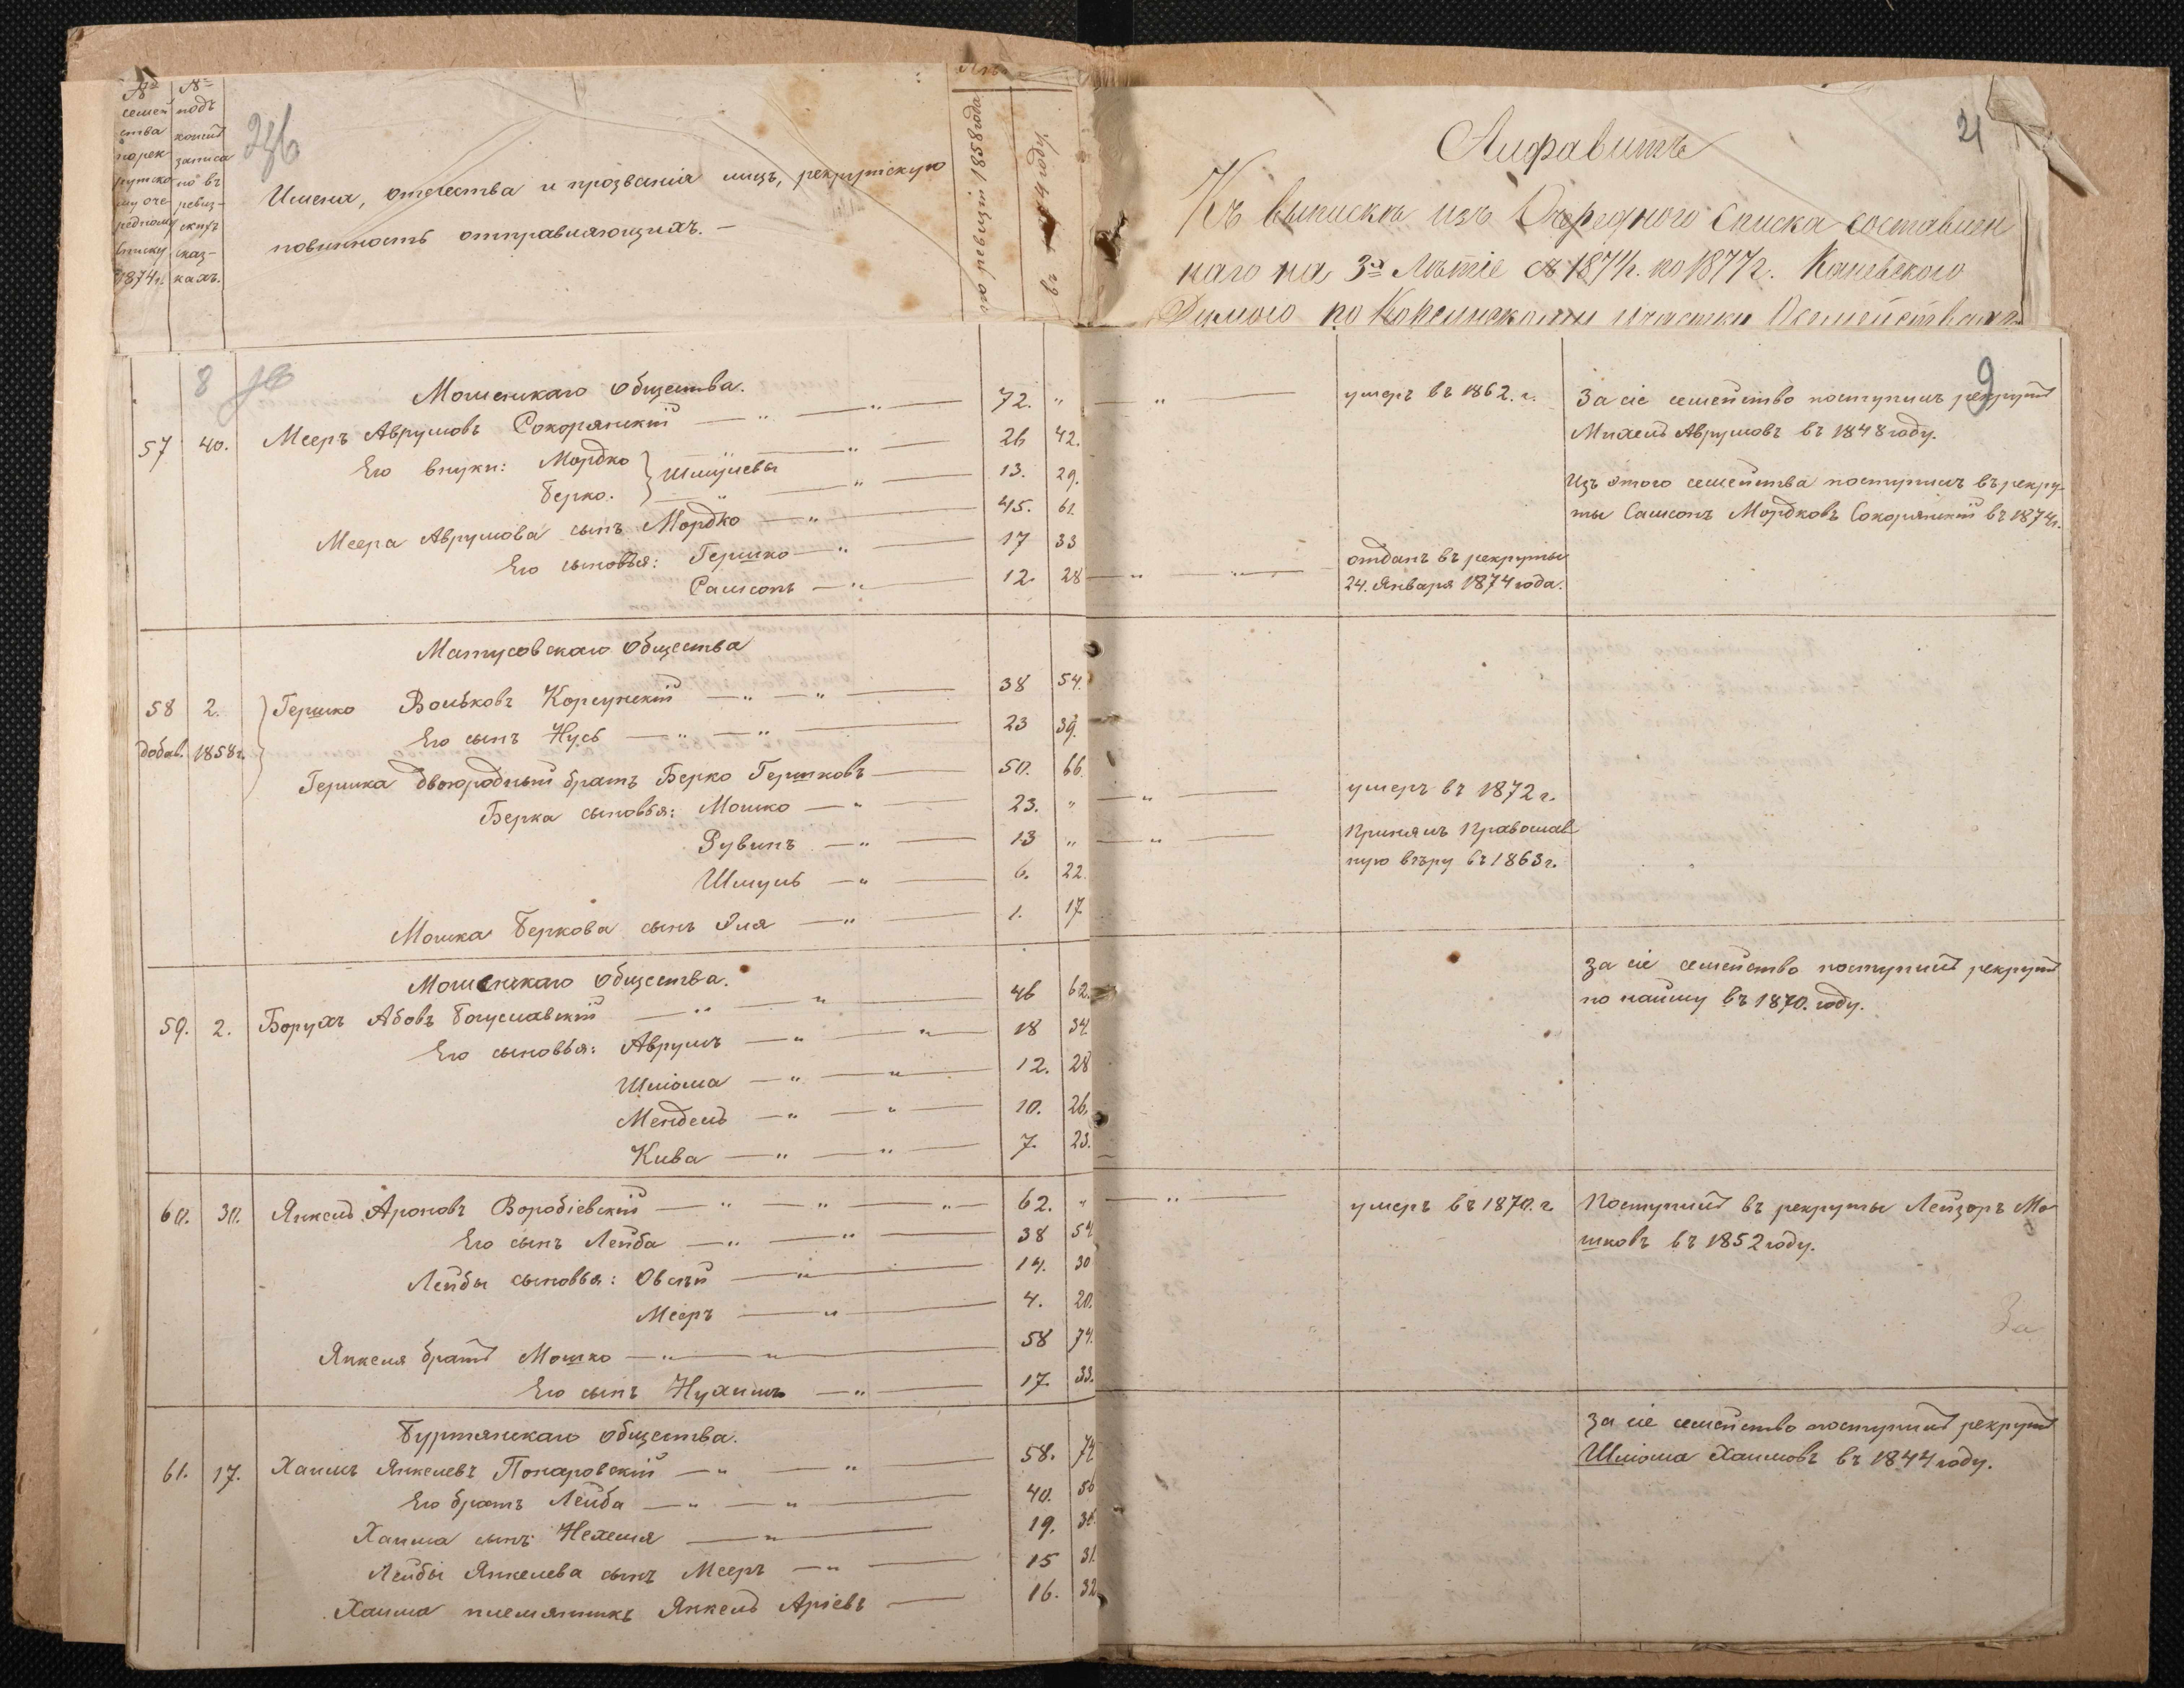 № семейства по рекрутскому очередному списку 1874 г.
№ подъ коимъ записано въ ревизскихъ сказкахъ.
Имена, отчества и прозванія лицъ, рекрутскую
повинность отправляющихъ. —
по ревизіи 1858 года
въ 1874 году
21
Алфавитъ
Къ выпискѣ изъ Очередного Списка составлен
наго на 3х Лѣтіе съ 1874 г. по 1877 г. Каневского
8
9
Мошенскаго Общества.
57 40. Мееръ Аврумовъ Сокорянскій — " — " — 72. " — " — умеръ въ 1862. г. За сіе семейство поступилъ рекрутъ
Михель Аврумовъ въ 1848 году.
Его внуки: Мордко } Шмулевы — " — 26 42.
Берко. — " — " — 13. 29. Изъ этого семейства поступилъ въ рекру-
Меера Аврумова сынъ Мордко — " — 45. 61. ты Самсонъ Мордковъ Сокорянскій въ 1874 г.
Его сыновья: Гершко — " — 17 33
Самсонъ — " — 12. 28 — " — " — отданъ въ рекруты
24. Января 1874 года.
Матусовскаго Общества
58 2. Гершко Вольковъ Корсунскій — " — " — 38 54.
добав. 1858 г. Его сынъ Нусь — " — " — 23 39.
Гершка двоюродный братъ Берко Гершковъ — 50. 66.
Берка сыновья: Мошко — " — 23. " — " — умеръ въ 1872 г.
Рувинъ — " — 13 " — " — Принялъ Православ
ную вѣру въ 1863 г.
Шмуль — " — 6. 22
Мошка Беркова сынъ Эля — " — 1. 17.
Мошенскаго Общества.
59. 2. Борухъ Абовъ Богуславскій — " — " — 46 62. За сіе семейство поступилъ рекрутъ
по найму въ 1870. году.
Его сыновья: Аврумъ — " — " — 18 34.
Шліома — " — " — 12. 28
Мендель — " — " — 10. 26.
Кива — " — " — 7. 23.
60. 30. Янкель Ароновъ Воробіевскій — " — " — " — 62. " — " — умеръ въ 1870. г. Поступилъ въ рекруты Лейзоръ Мо
шковъ въ 1852 году.
Его сынъ Лейба — " — " — 38 54
Лейбы сыновья: Овсѣй — " — 14. 30
Мееръ — " — 4. 20.
За
Янкеля братъ Мошко — " — " — 58 74.
Его сынъ Нухимъ — " — 17 33.
Буртянскаго Общества.
61. 17. Хаимъ Янкелевъ Понаровскій — " — " — 58. 74 За сіе семейство поступилъ рекрутъ
Шліома Хаимовъ въ 1844 году.
Его братъ Лейба — " — " — 40. 56
Хаима сынъ Нехемя — " — 19. 35.
Лейбы Янкелева сынъ Мееръ — " — 15 31.
Хаима племянникъ Янкель Аріевъ — 16. 32